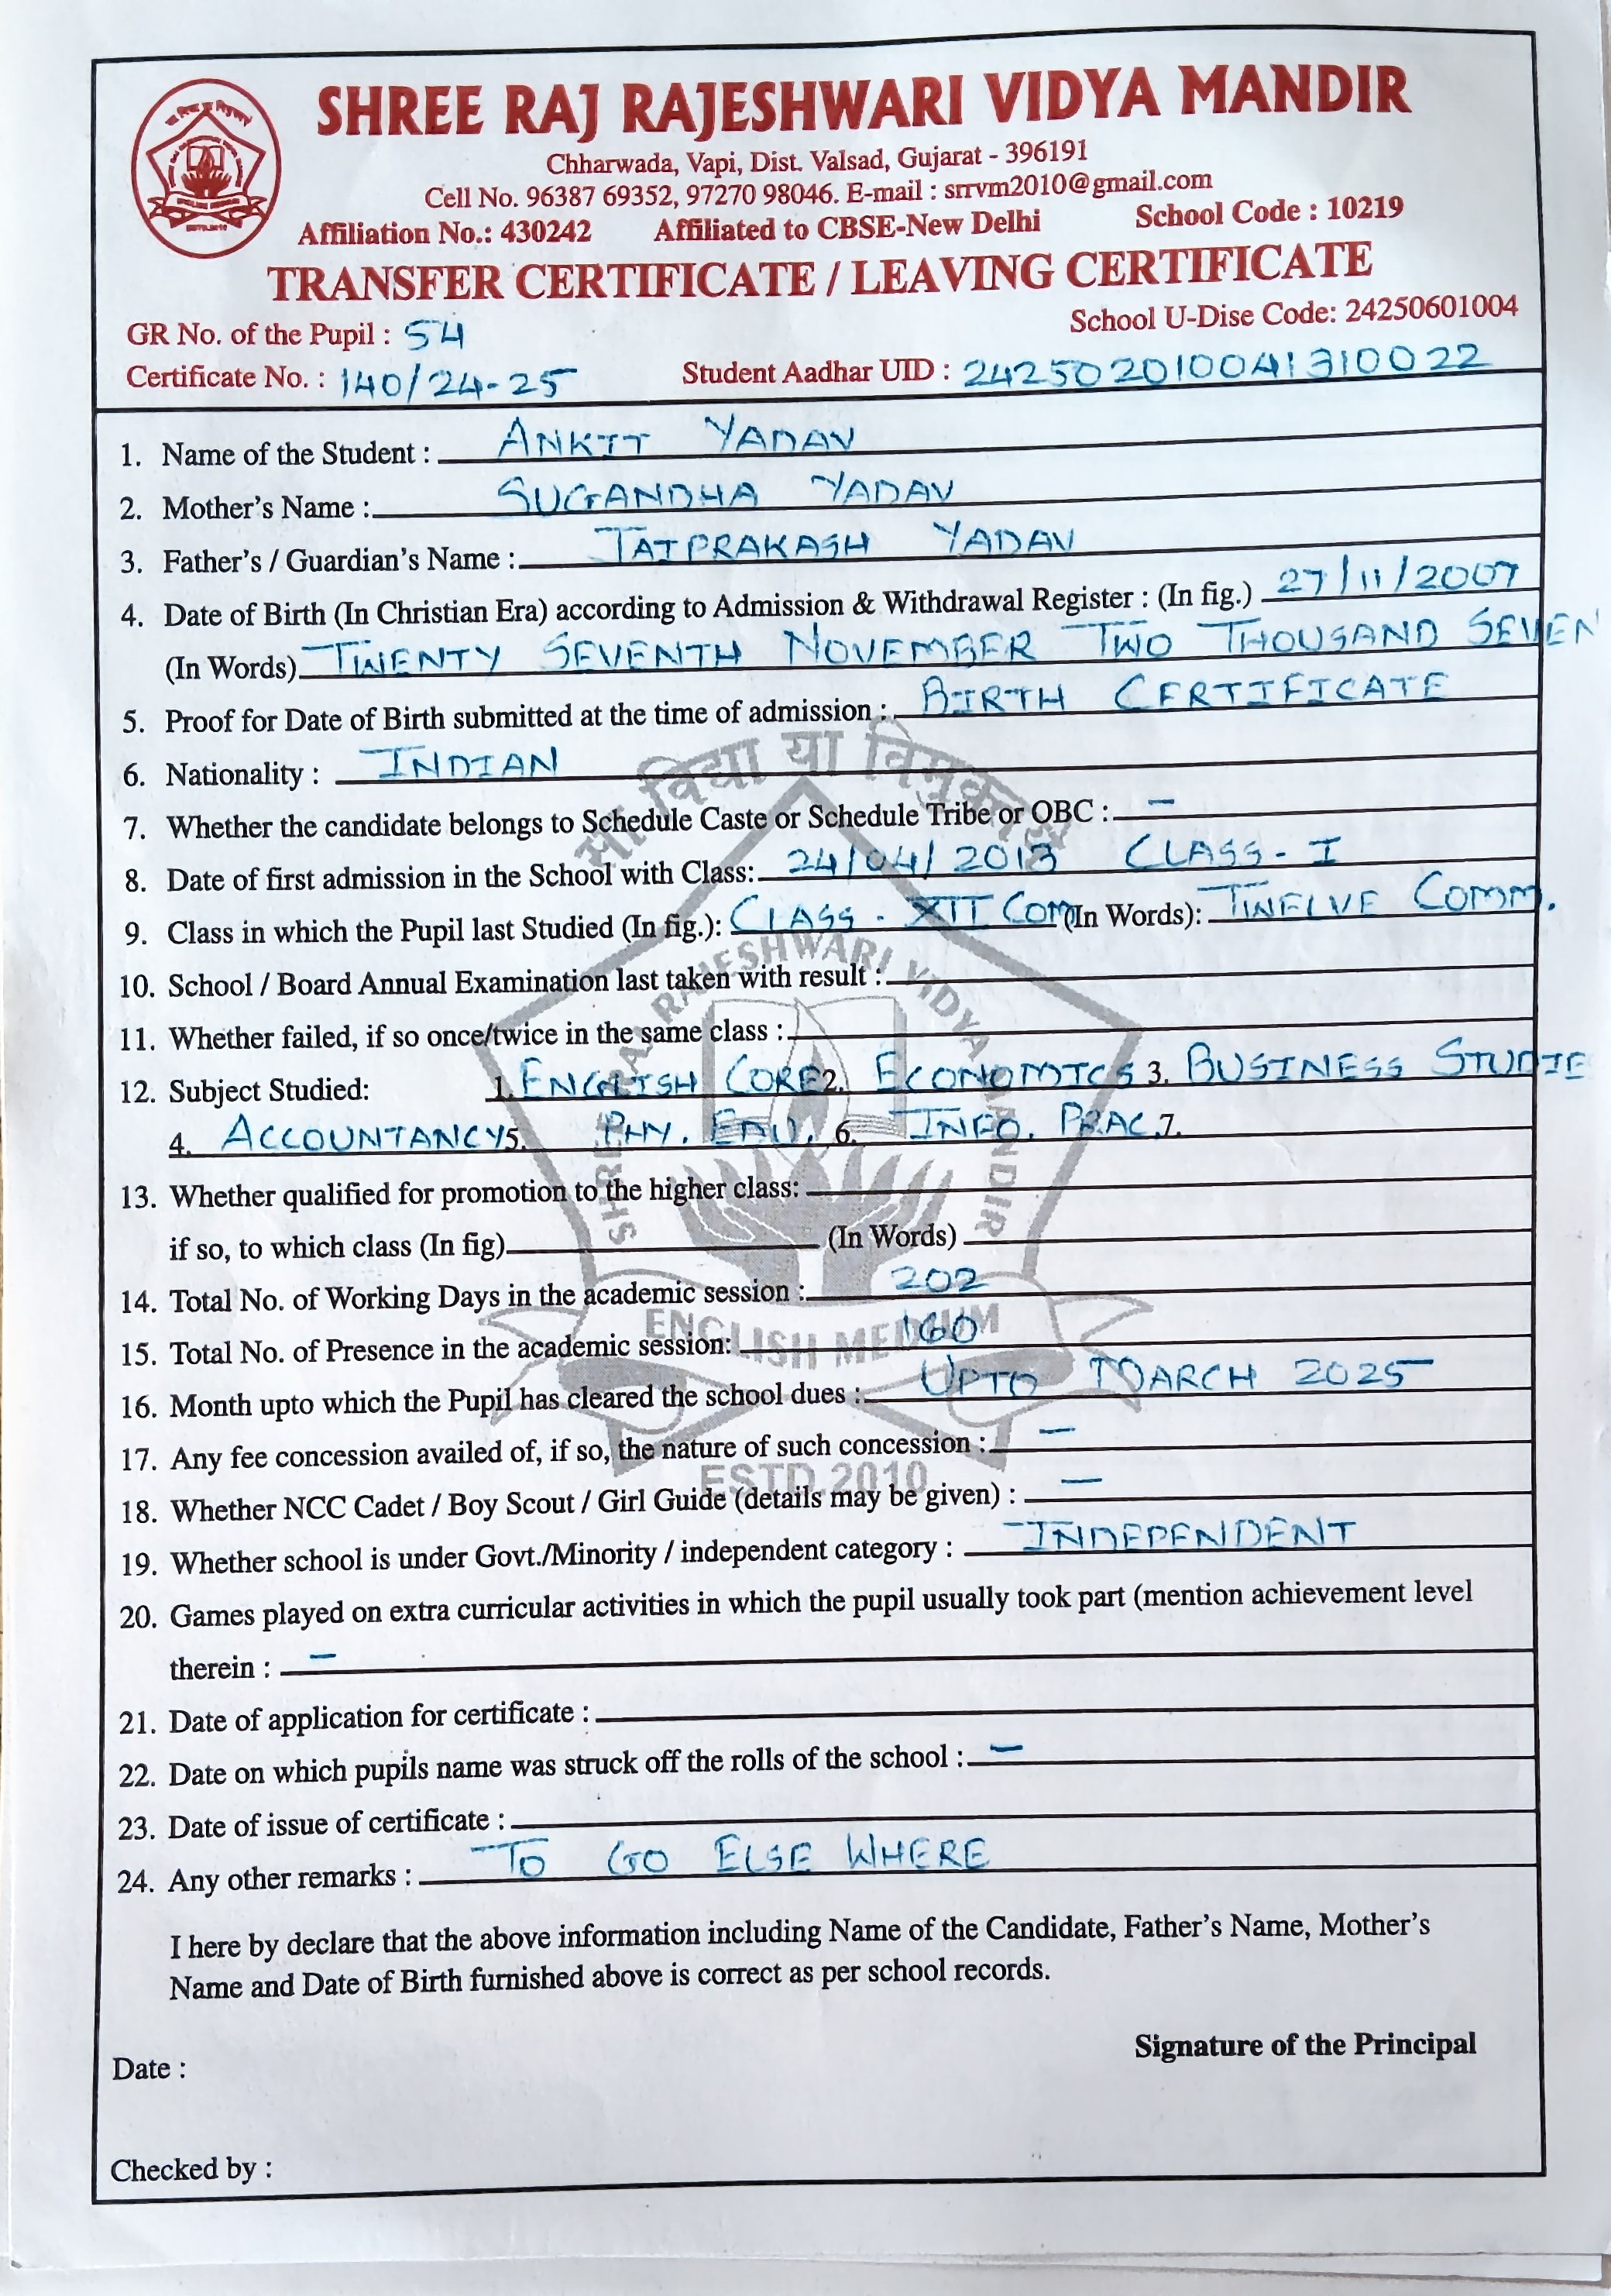 SHREE RAJ RAJESHWARI VIDYA MANDIR
Chharwada, Vapi, Dist. Valsad, Gujarat - 396191
Cell No. 96387 69352, 97270 98046. E-mail : srrvm2010@gmail.com
Affiliation No.: 430242 Affiliated to CBSE-New Delhi School Code : 10219
TRANSFER CERTIFICATE / LEAVING CERTIFICATE
School U-Dise Code: 24250601004
GR No. of the Pupil : 54
Certificate No. : 140/24-25 Student Aadhar UID : 242502010041310022
1. Name of the Student : ANKIT YADAV
2. Mother's Name : SUGANDHA YADAV
3. Father's / Guardian's Name : JAIPRAKASH YADAV
4. Date of Birth (In Christian Era) according to Admission & Withdrawal Register : (In fig.) 27/11/2007
(In Words) TWENTY SEVENTH NOVEMBER TWO THOUSAND SEVEN
5. Proof for Date of Birth submitted at the time of admission : BIRTH CERTIFICATE
6. Nationality : INDIAN
7. Whether the candidate belongs to Schedule Caste or Schedule Tribe or OBC : —
8. Date of first admission in the School with Class: 24/04/2013 CLASS - I
9. Class in which the Pupil last Studied (In fig.): CLASS - XII COM (In Words): TWELVE COMM.
10. School / Board Annual Examination last taken with result :
11. Whether failed, if so once/twice in the same class :
12. Subject Studied: 1. ENGLISH CORE 2. ECONOMICS 3. BUSINESS STUDIE
4. ACCOUNTANCY 5. PHY. EDU. 6. INFO. PRAC. 7.
13. Whether qualified for promotion to the higher class:
if so, to which class (In fig) (In Words)
14. Total No. of Working Days in the academic session : 202
15. Total No. of Presence in the academic session: 160
16. Month upto which the Pupil has cleared the school dues : UPTO MARCH 2025
17. Any fee concession availed of, if so, the nature of such concession : —
18. Whether NCC Cadet / Boy Scout / Girl Guide (details may be given) : —
19. Whether school is under Govt./Minority / independent category : INDEPENDENT
20. Games played on extra curricular activities in which the pupil usually took part (mention achievement level
therein : —
21. Date of application for certificate :
22. Date on which pupils name was struck off the rolls of the school : —
23. Date of issue of certificate :
24. Any other remarks : TO GO ELSE WHERE
I here by declare that the above information including Name of the Candidate, Father's Name, Mother's
Name and Date of Birth furnished above is correct as per school records.
Signature of the Principal
Date :
Checked by :
सा विद्या या विमुक्तये
SHREE RAJ RAJESHWARI VIDYA MANDIR
ENGLISH MEDIUM
ESTD.2010